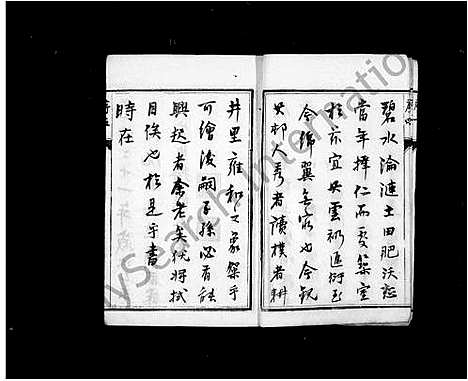 碧水淪漣土田肥沃
當年擇仁而爰築室
於茲宜其雲礽迤衍至
今綿翼無窮也今觀
其村人秀者讀樸者耕
井里雍和之象樂乎
可繪後嗣子孫必有能
興起者余老矣猶將拭
目俟也於是乎書
時在
MySearch International